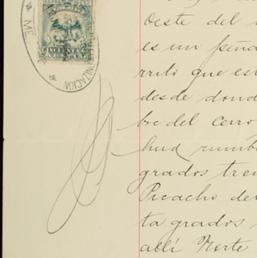 Oeste del
es un peña
rrito que es
desde dond
bre del cerro
hud rumb
grados tre
Picacho de
ta grados
allí Norte